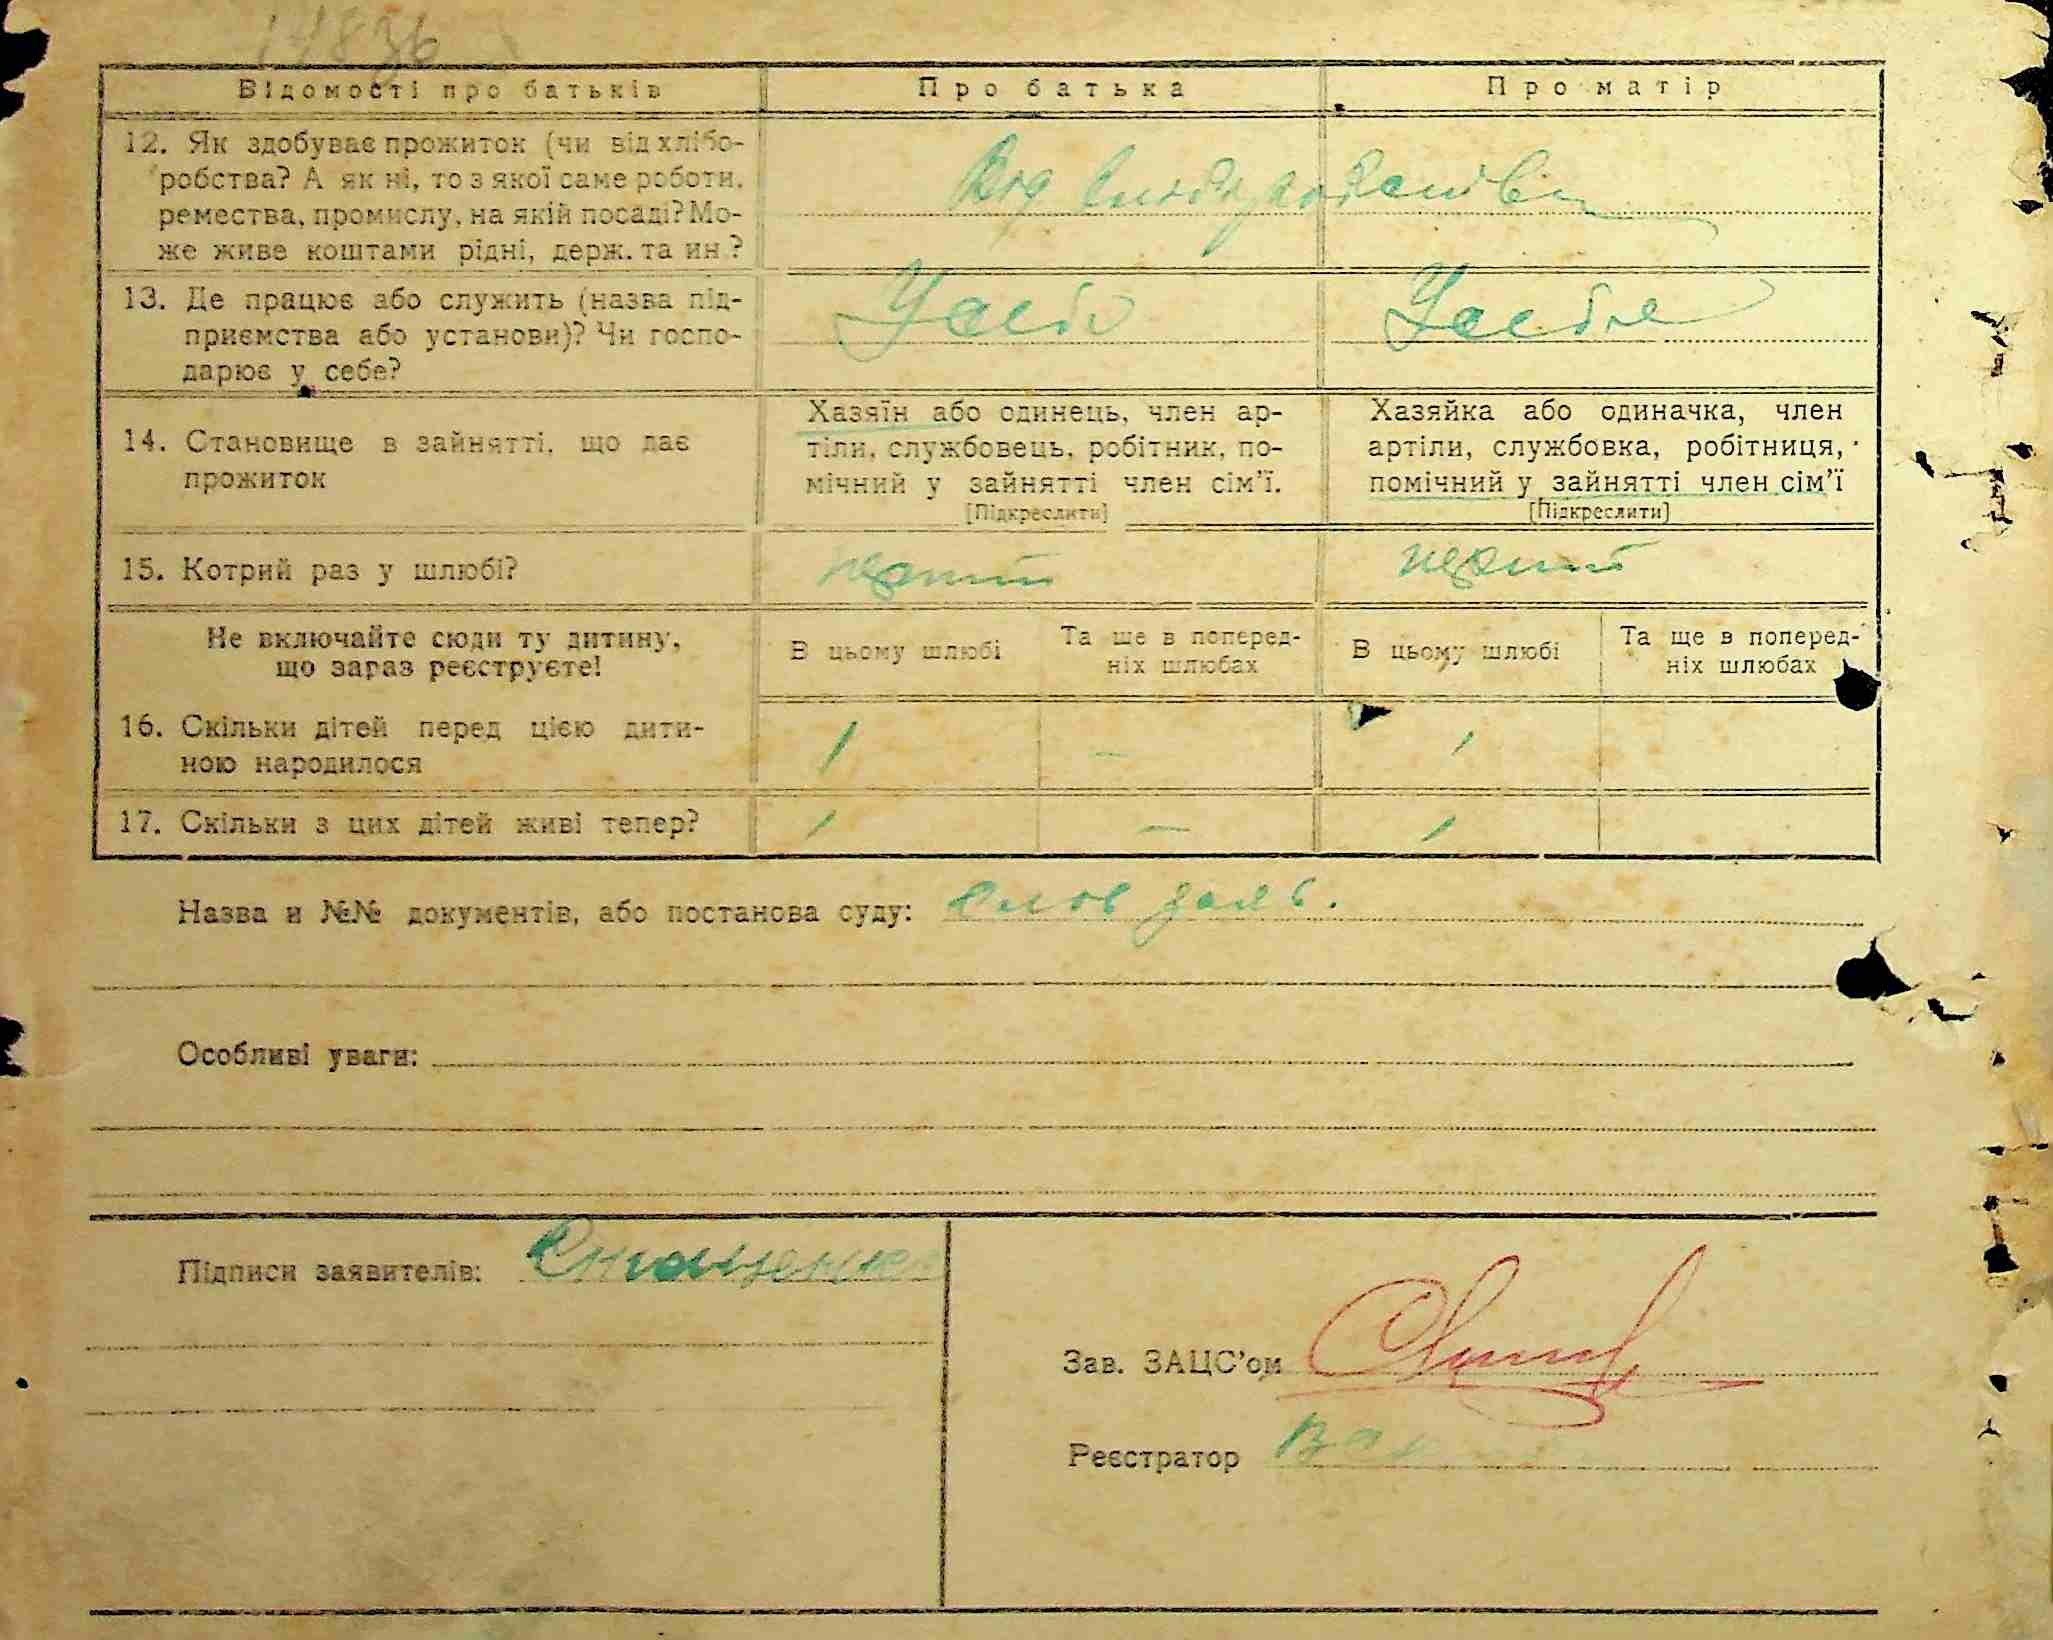 14836
Відомості про батьків
Про батька
Про матір
12. Як здобуває прожиток (чи від хлібо-
робства? А як ні, то з якої саме роботи,
ремества, промислу, на якій посаді? Мо-
же живе коштами рідні, держ. та ин.?
Від
13. Де працює або служить (назва під-
приємства або установи)? Чи госпо-
дарює у себе?
У себе
У себе
14. Становище в зайнятті, що дає
прожиток
Хазяїн або одинець, член ар-
тіли, службовець, робітник, по-
мічний у зайнятті член сім'ї.
[Підкреслити]
Хазяйка або одиначка, член
артіли, службовка, робітниця,
помічний у зайнятті член сім'ї
[Підкреслити]
15. Котрий раз у шлюбі?
перший
перший
Не включайте сюди ту дитину,
що зараз реєструєте!
В цьому шлюбі
Та ще в поперед-
ніх шлюбах
В цьому шлюбі
Та ще в поперед-
ніх шлюбах
16. Скільки дітей перед цією дити-
ною народилося
1
–
1
17. Скільки з цих дітей живі тепер?
1
–
1
Назва и №№ документів, або постанова суду:
Особливі уваги:
Підписи заявителів:
Зав. ЗАЦС'ом
Реєстратор